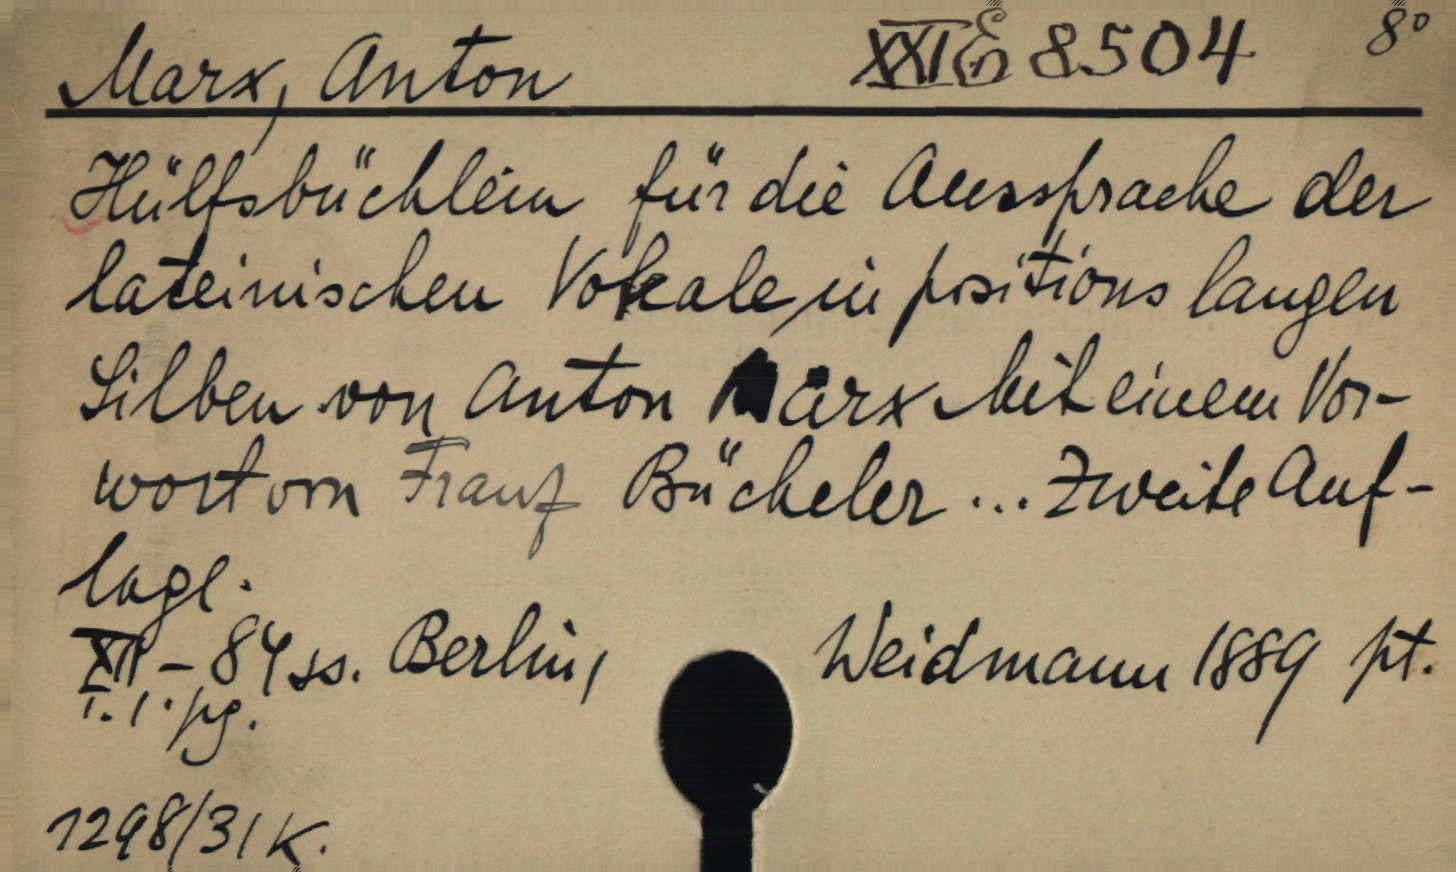 Marx, Anton XXI E 8504 8°
Hülfsbüchlein für die Aussprache der
lateinischen Vokale in positions langen
Silben von Anton Marx Mit einem Vor-
wort von Franz Bücheler ... Zweite Auf-
lage.
XII - 84 ss. Berlin, Weidmann 1889 pt.
1298/31 K.